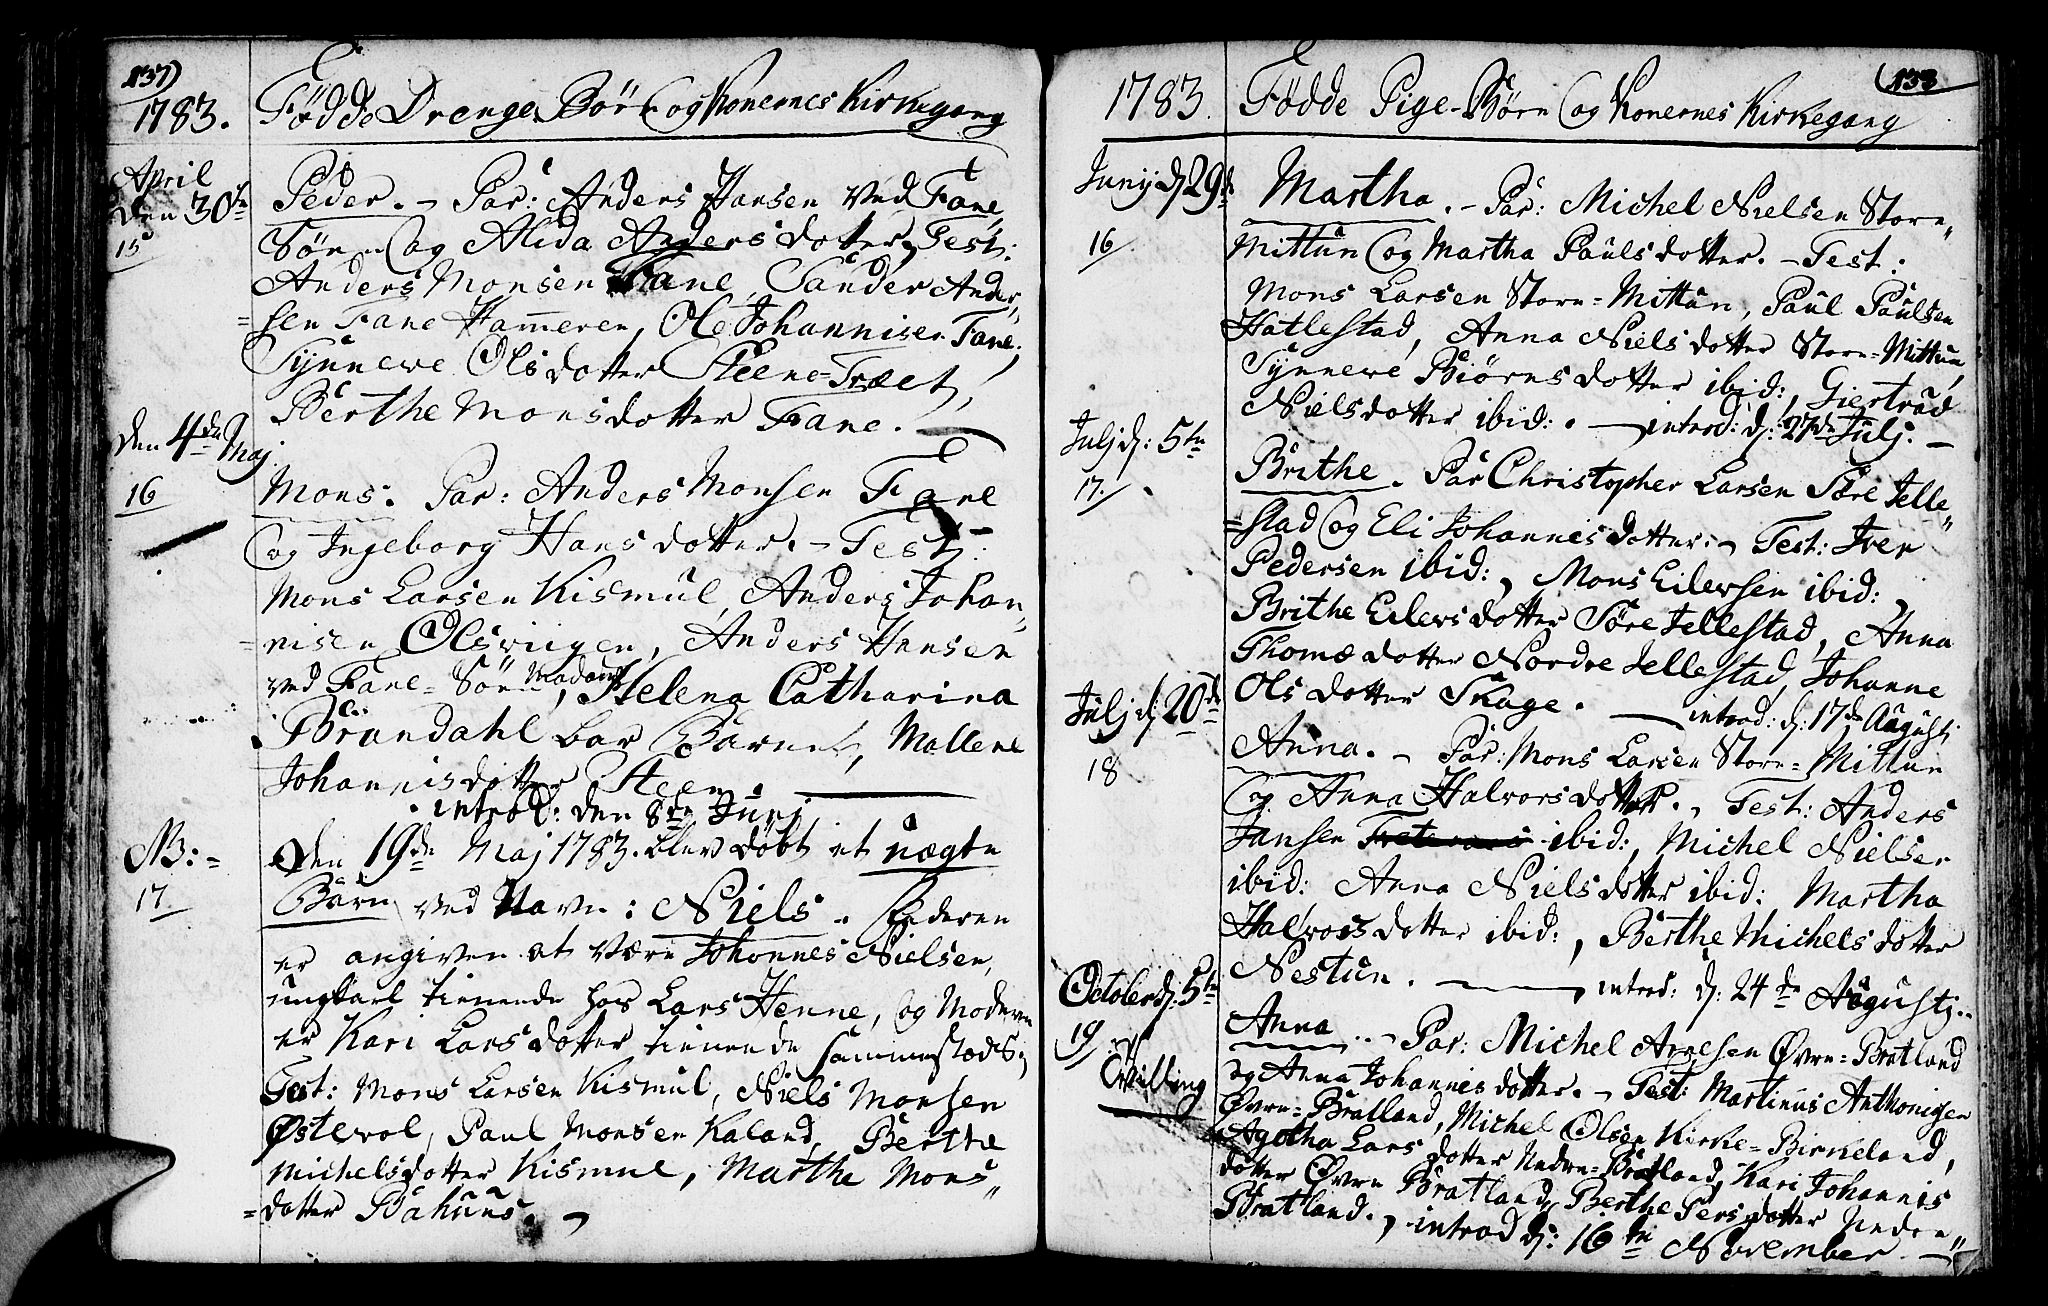 137)
1783. Fødde Drenge Børn og Konernes Kirkegang
April
den 30te
15
Peder. - Par: Anders Hansen ved Fane
Søen og Alida Andersdotter, Test:
Anders Monsen Fane, Sander Ander,,
=sen Fane Hammeren, Ole Johannisen Fane,
Synneve Olsdotter Steene=Træet,
Berthe Monsdotter Fane. —
den 4de Maj.
16
Mons. Par: Anders Monsen Fane
og Ingeborg Hansdotter. - Test:
Mons Larsen Kismul, Anders Johan,,
=nisen Olsviigen, Anders Hansen
ved Fane=Søen, Madame Helena Catharina
Bründahl bar Barnet, Mallene
Johannisdotter Steen. —
introd: den 8te Junj
NB: -
17
Den 19de Maj 1783. blev døbt et uægte
Barn ved Navn: Niels. Faderen
er angiven at være Johannes Nielsen,
ungkarl tienende hos Lars Henne, og Moderen
er Kari Larsdotter tienende sammestæds,
Test: Mons Larsen Kismul, Niels Monsen
Østevol, Paul Monsen Kaland, Berthe
Michelsdotter Kismul, Marthe Mons,,
=dotter Bahuus. -
(138
1783. Fødde Pige-Børn og Konernes Kirkegang
Junij d: 29de
16
Martha. - Par: Michel Nielsen Store,,
Mittun og Martha Paulsdotter. - Test:
Mons Larsen Store=Mittun, Paul Paulsen
Hatlestad, Anna Nielsdotter Store=Mittun,
Synneve Biørnsdotter ibid:, Giertrud
Nielsdotter ibid:. — introd: d: 27de Julj. -
Julj d: 5te
17.
Brithe. Par Christopher Larsen Søre Jelle,,
=stad og Eli Johannesdotter. - Test: Iver
Pedersen ibid:, Mons Eilersen ibid:,
Brithe Eilersdotter Søre Jellestad, Anna
Thomædotter Nordre Jellestad, Johanne
Olsdotter Skage. — introd: d: 17de August:
Julj d: 20de
18
Anna. - Par: Mons Larsen Store=Mittun
og Anna Halvorsdotter. - Test: Anders
Jansen ibid:, Michel Nielsen
ibid: Anna Nielsdotter ibid: Martha
Halvorsdotter ibid:, Berthe Michelsdotter
Nestun. — introd: d: 24de Augustj.
October d: 5te
19
Tvilling
Anna. - Par: Michel Arnesen Øvre=Bratland
og Anna Johannisdotter. - Test: Martinus Anthonisen
Øvre=Bratland, Michel Olsen Kirke=Birkeland,
Agotha Larsdotter Nedre=Bratland, Kari Johannis
dotter Øvre Bratland, Berthe Persdotter Neder,,
Bratland. - introd d: 16de November. —